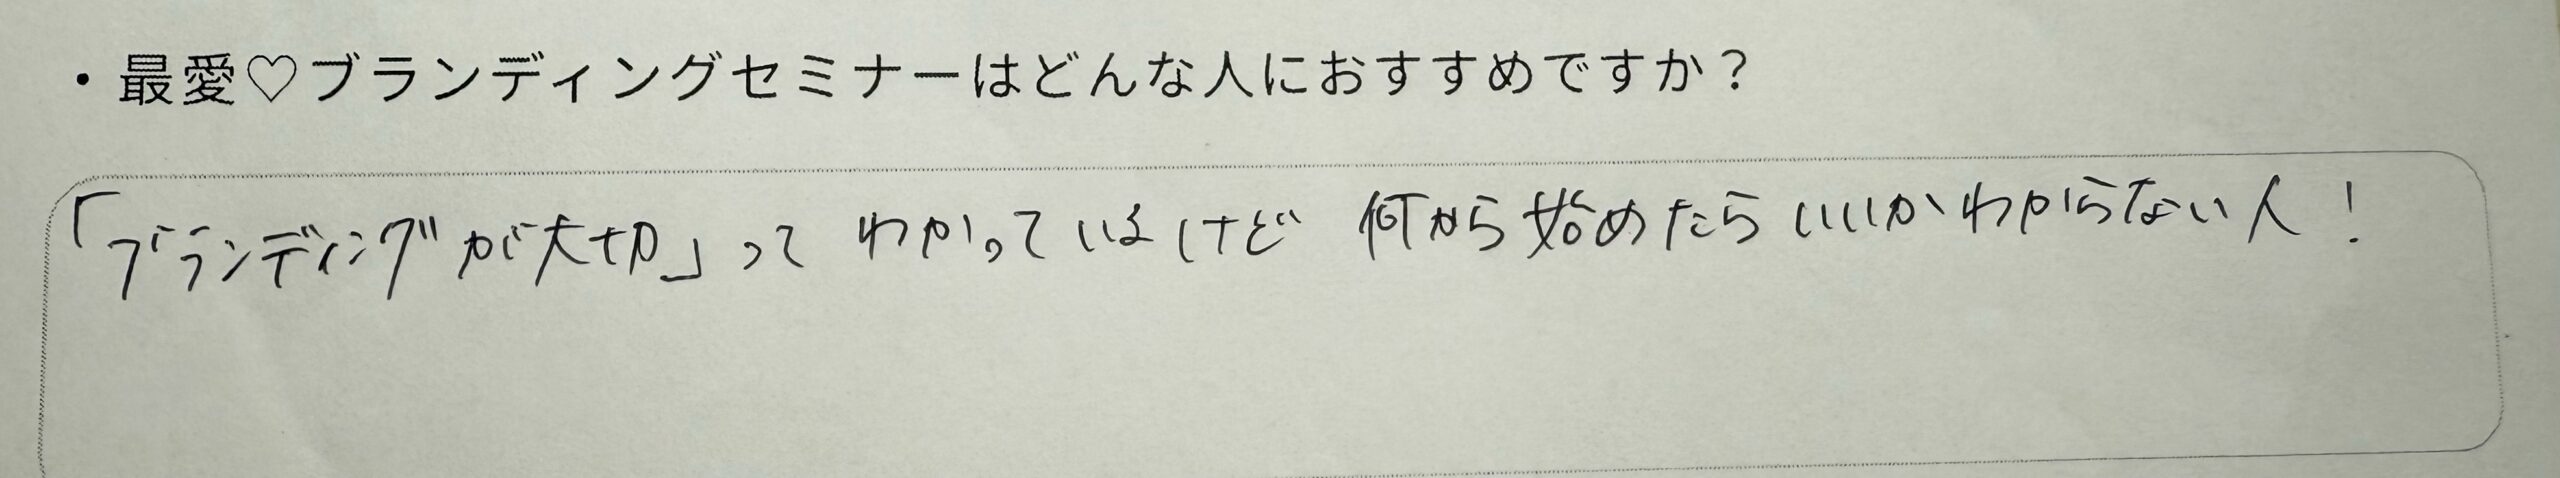 ・最愛♡ブランディングセミナーはどんな人におすすめですか？
「ブランディングが大切」って わかっているけど 何から始めたらいいかわからない人！